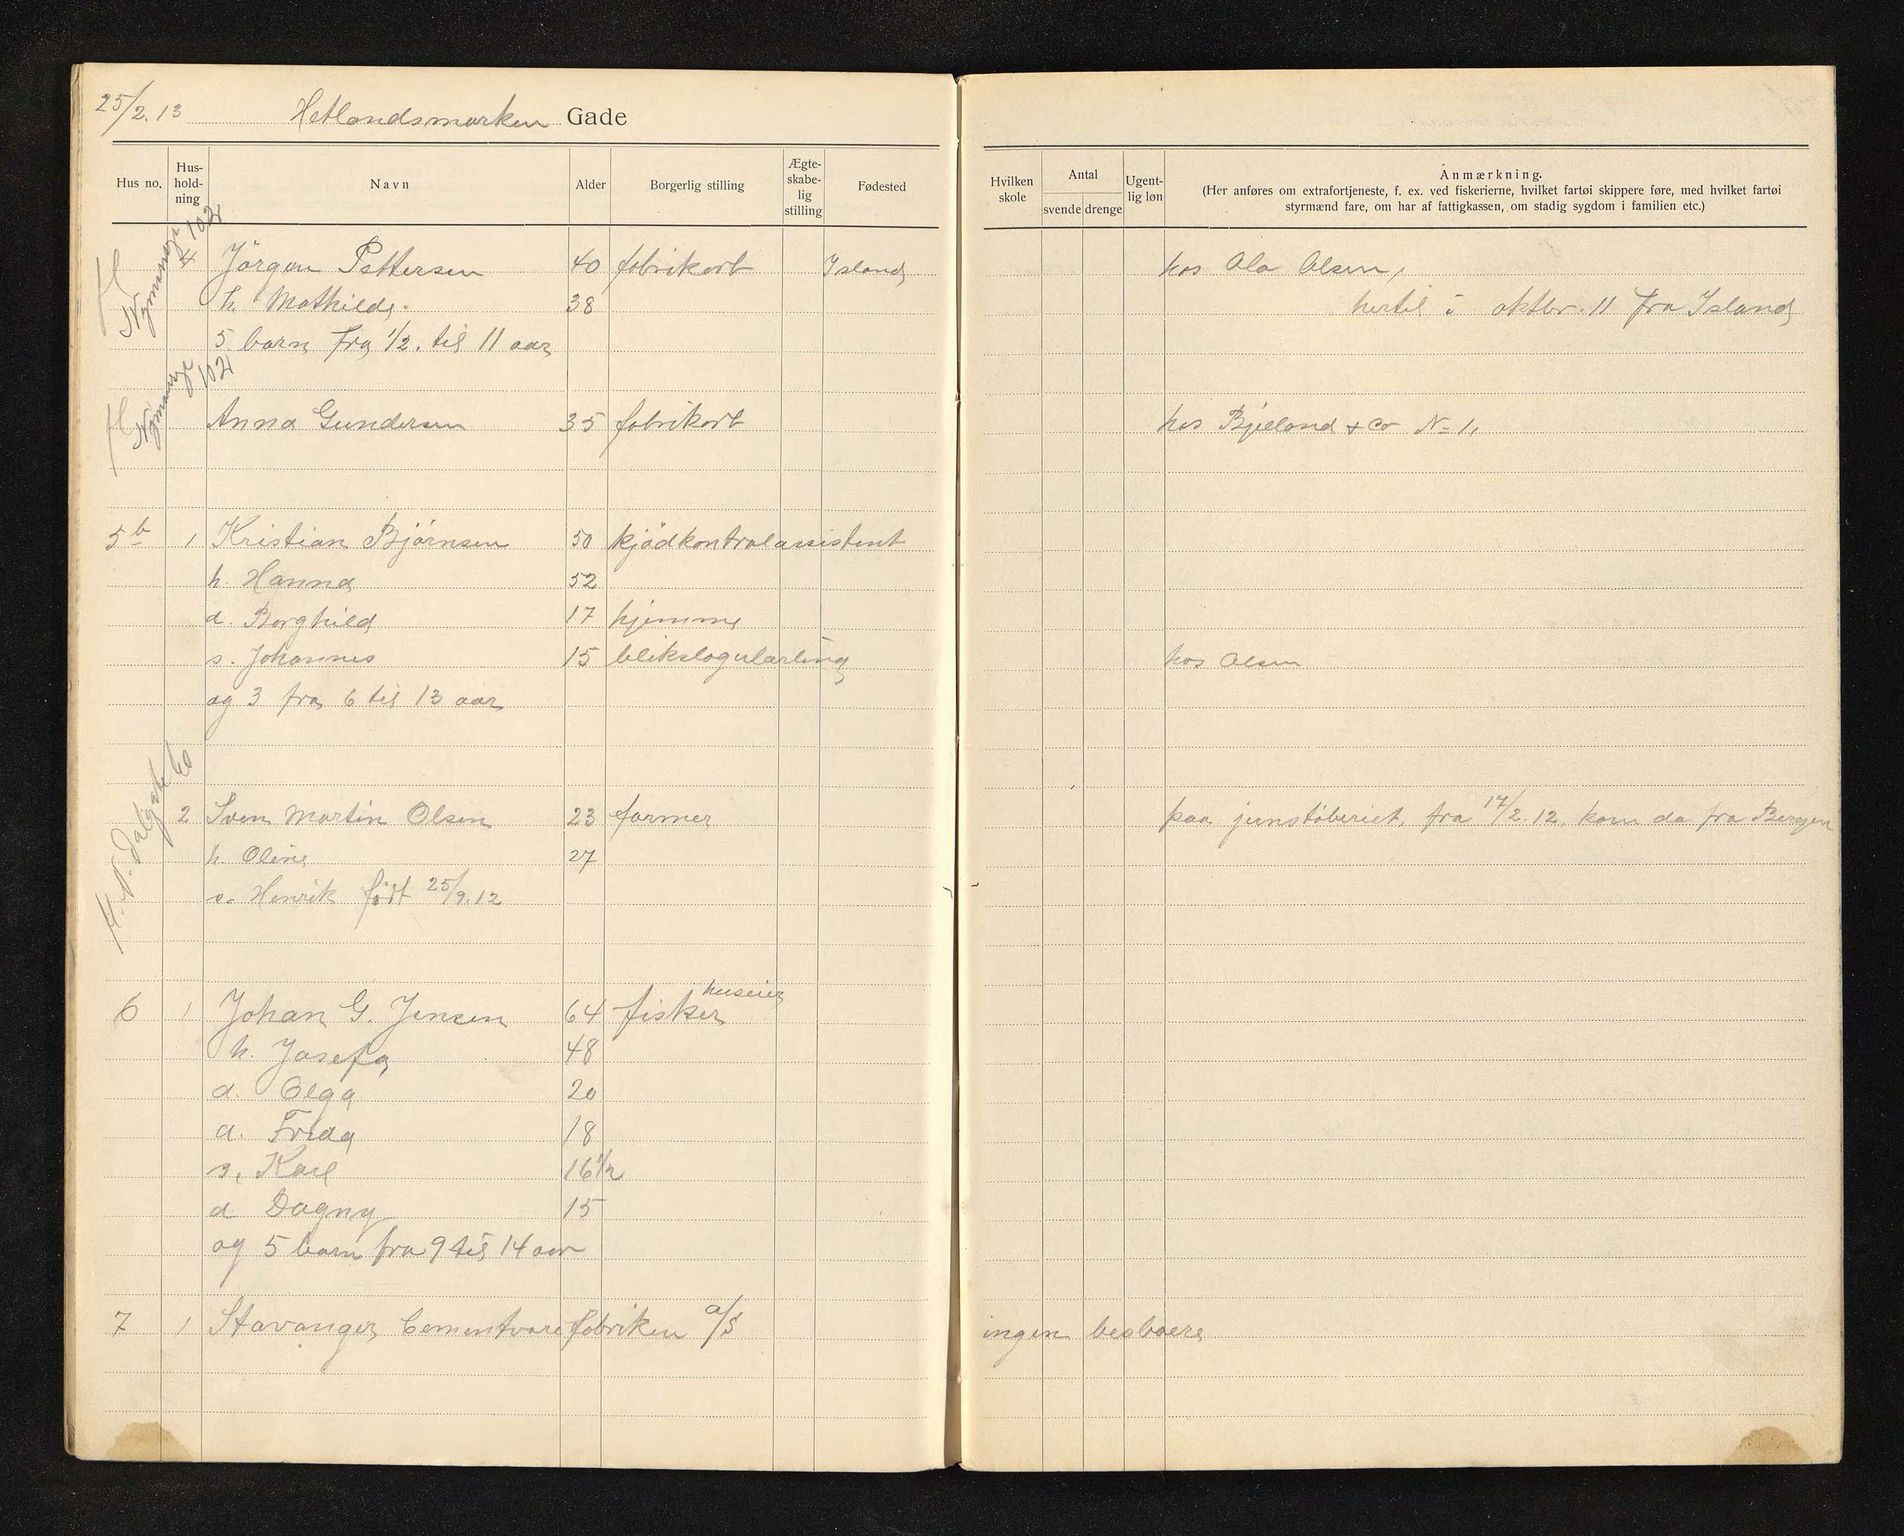 25/2.13 Hetlandsmarken Gade
Hus no. Hus-hold-ning Navn Alder Borgerlig stilling Ægte-skabe-lig stilling Fødested Hvilken skole Antal svende drenge Ugent-lig løn Anmærkning.
(Her anføres om extrafortjeneste, f. ex. ved fiskerierne, hvilket fartøi skippere føre, med hvilket fartøi
styrmænd fare, om har af fattigkassen, om stadig sygdom i familien etc.)
4 Jörgen Pettersen 40 fabrikarb Island hos Ola Olsen,
h. Mathilde. 38 hertil i oktbr. 11 fra Island
5 barn fra 1/2. til 11 aar
102
Anna Gundersen 35 fabrikarb hos Bjelland & Co No 1,
5b 1 Kristian Bjørnsen 50 kjödkontrolassistent
h. Hanna 52
d. Borghild 17 hjemme
s. Johannes 15 blikslagerlærling hos Olsen
og 3 fra 6 til 13 aar
2 Sven Martin Olsen 23 former paa jernstöberiet, fra 17/2 12. kom da fra Bergen
h. Oline 27
s. Henrik født 25/9.12
huseier
6 1 Johan G. Jensen 64 fisker
h. Josefa 48
d. Olga 20
d. Frida 18
s. Karl 16 1/2
d Dagny 15
og 5 barn fra 9 til 14 aar
7 1 Stavanger Cementvarefabriken a/s ingen beboere